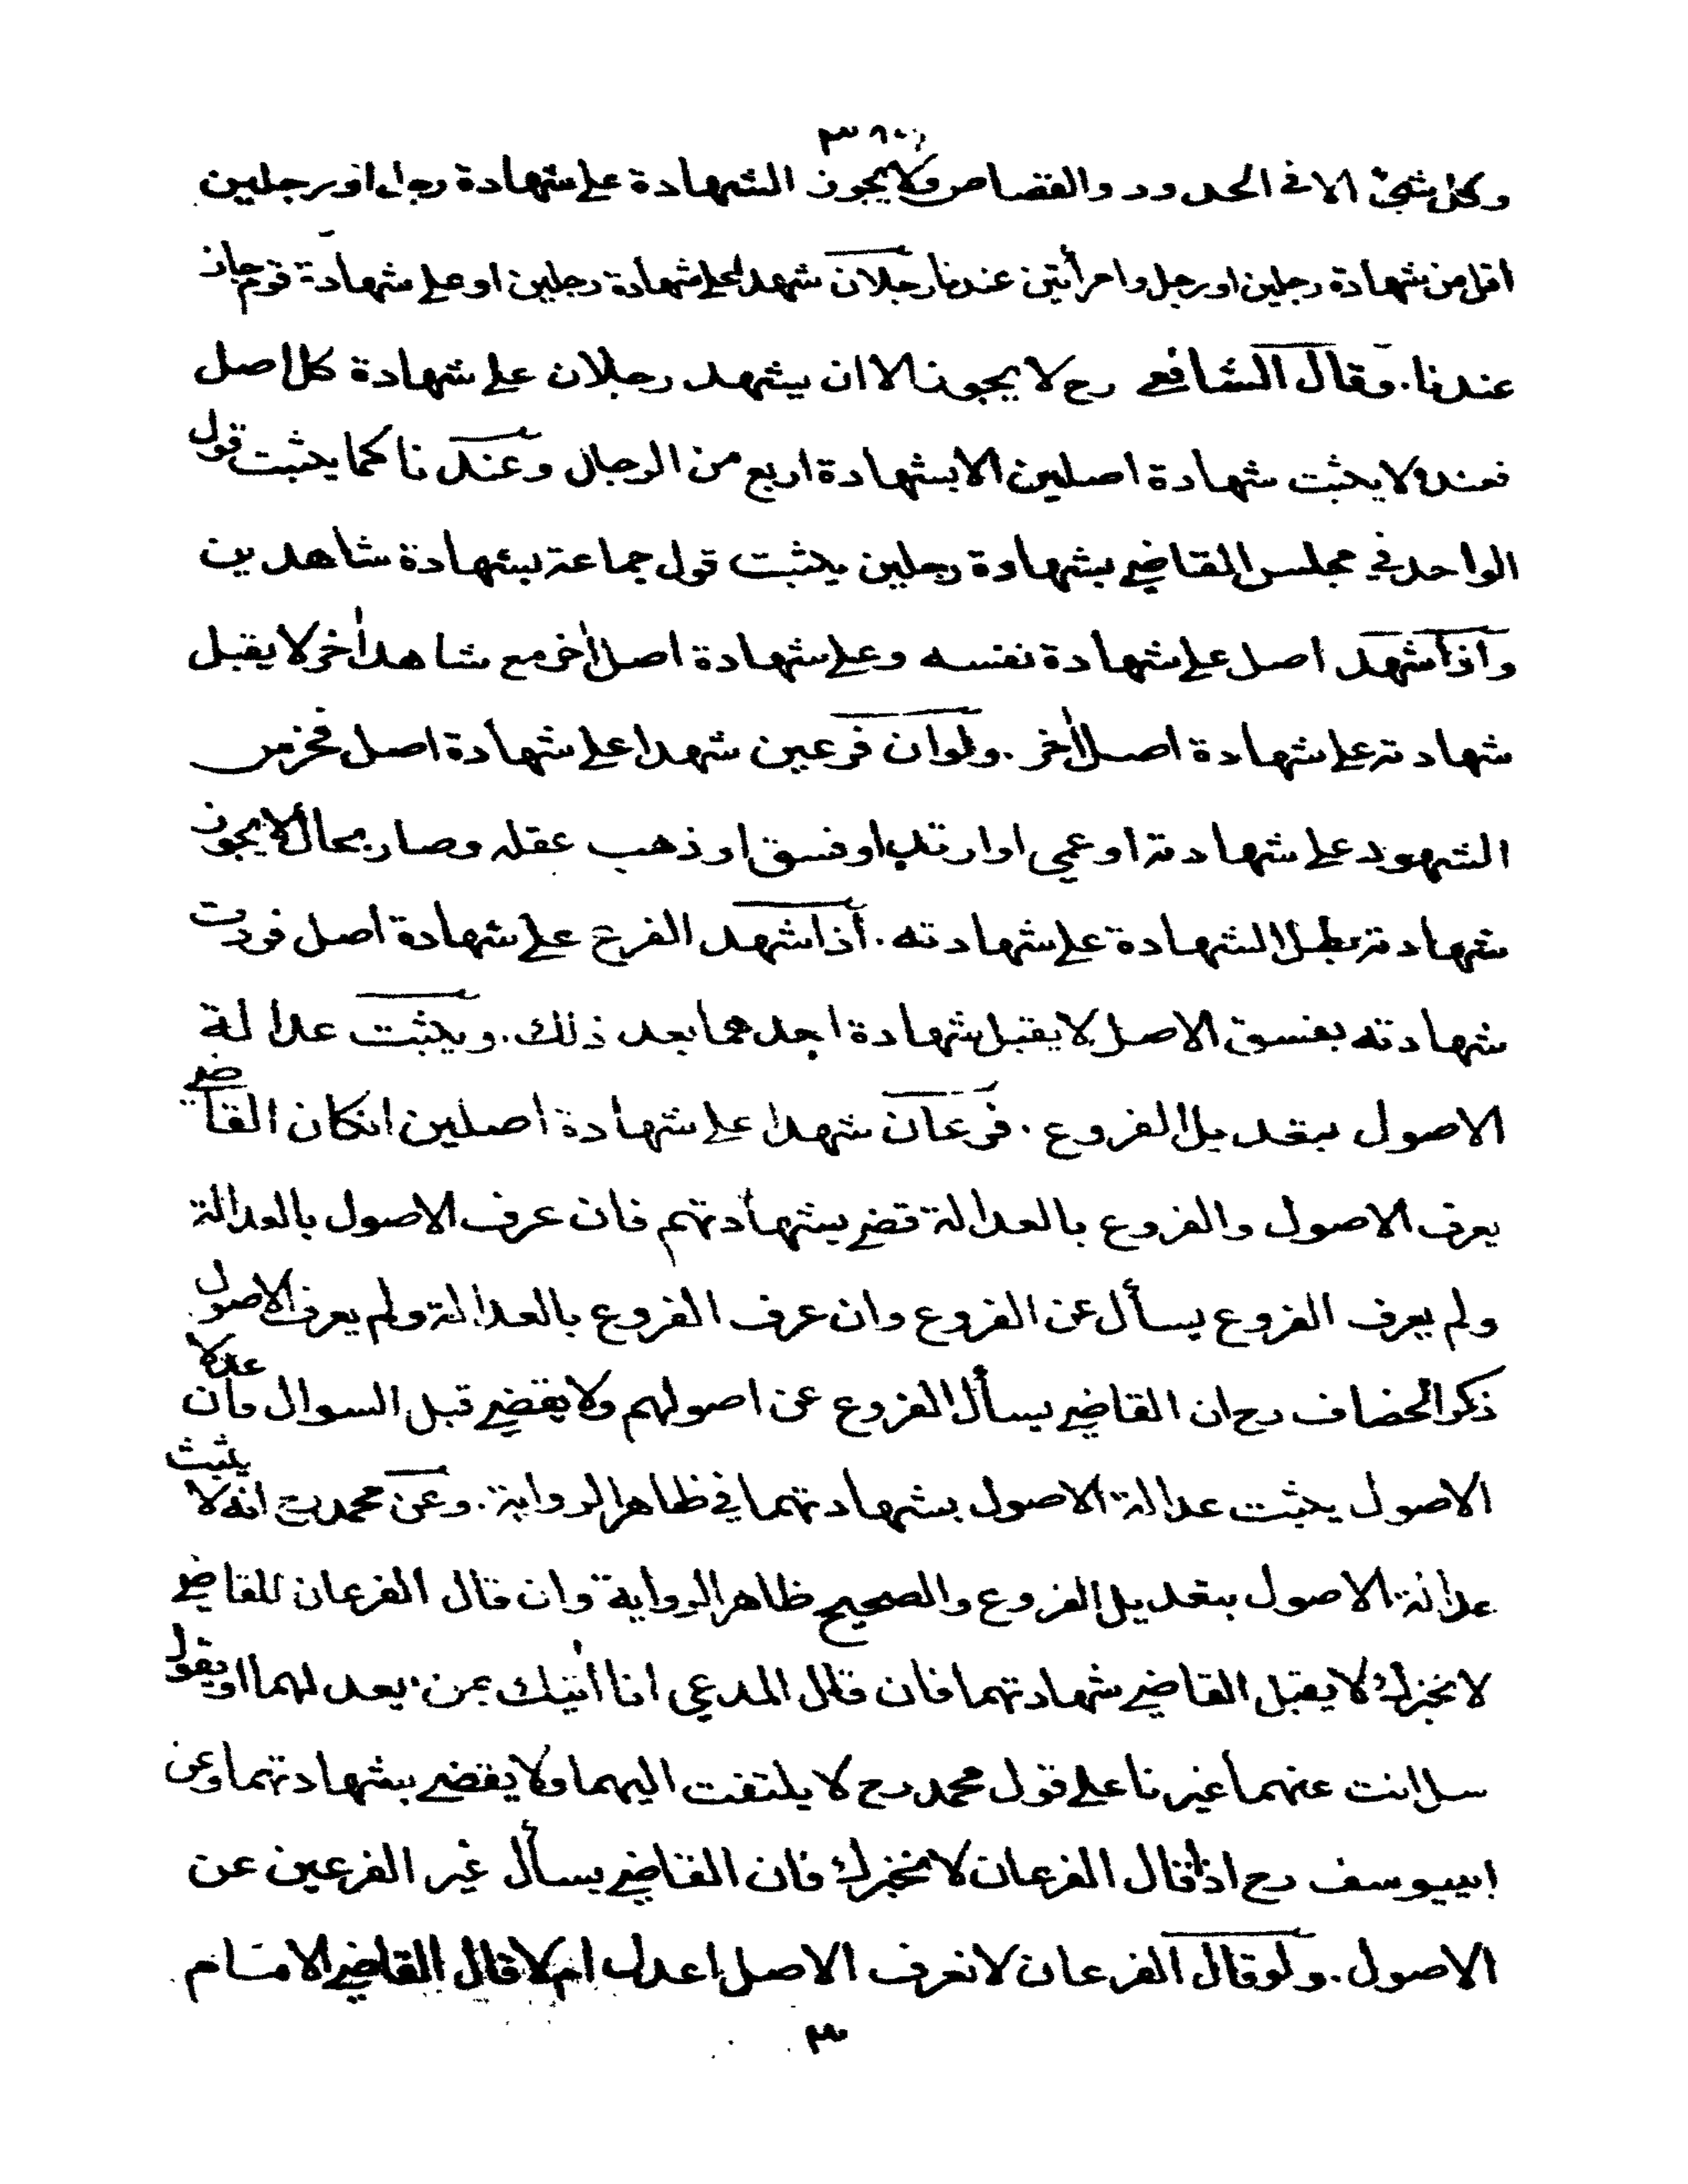 وكل شيئ الا في الحدود والقصاص ولا يجوز الشهادة على شهادة رجل او رجلين
اقل من شهادة رجلين او رجل وامرأتين عندنا رجلان شهدا على شهادة رجلين او على شهادة قوم جاز
عندنا. وقال الشافعي رح لا يجوز الا ان يشهد رجلان على شهادة كل اصل
فعنده لا يثبت شهادة اصلين الا بشهادة اربع من الرجال وعندنا كما يثبت قول
الواحد في مجلس القاضي بشهادة رجلين يثبت قول جماعة بشهادة شاهدين
واذا شهد اصل على شهادة نفسه وعلى شهادة اصل اٰخر مع شاهد اٰخر لا يقبل
شهادته على شهادة اصل اٰخر. ولو ان فرعين شهدا على شهادة اصل فخرس
الشهود على شهادته او عمي او ارتد او فسق او ذهب عقله وصار بحال لا يجوز
شهادته بطل الشهادة على شهادته. اذا شهد الفرع على شهادة اصل فردت
شهادته بفسق الاصل لا يقبل شهادة احدهما بعد ذلك. ويثبت عدالة
الاصول بتعديل الفروع. فرعان شهدا على شهادة اصلين ان كان القاضي
يعرف الاصول والفروع بالعدالة قضى بشهادتهم فان عرف الاصول بالعدالة
ولم يعرف الفروع يسأل عن الفروع وان عرف الفروع بالعدالة ولم يعرف الاصول
ذكر الخصاف رح ان القاضي يسأل الفروع عن اصولهم ولا يقضي قبل السوال فان عدلا
الاصول يثبت عدالة الاصول بشهادتهما في ظاهر الرواية. وعن محمد رح انه لا يثبت
عدالة الاصول بتعديل الفروع والصحيح ظاهر الرواية وان قال الفرعان للقاضي
لا نخبرك لا يقبل القاضي شهادتهما فان قال المدعي انا اٰتيك بمن يعدلهما او يقول
سل انت عنهما غيرنا على قول محمد رح لا يلتفت اليهما ولا يقضي بشهادتهما وعن
ابييوسف رح اذا قال الفرعان لا نخبرك فان القاضي يسأل غير الفرعين عن
الاصول. ولو قال الفرعان لا نعرف الاصل اعدل ام لا قال القاضي الامام